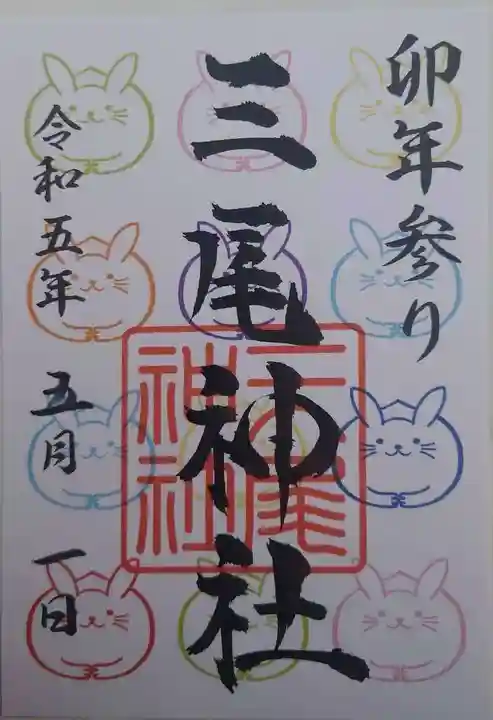 卯年参り
三尾神社
三尾
神社
令和五年 五月 一日